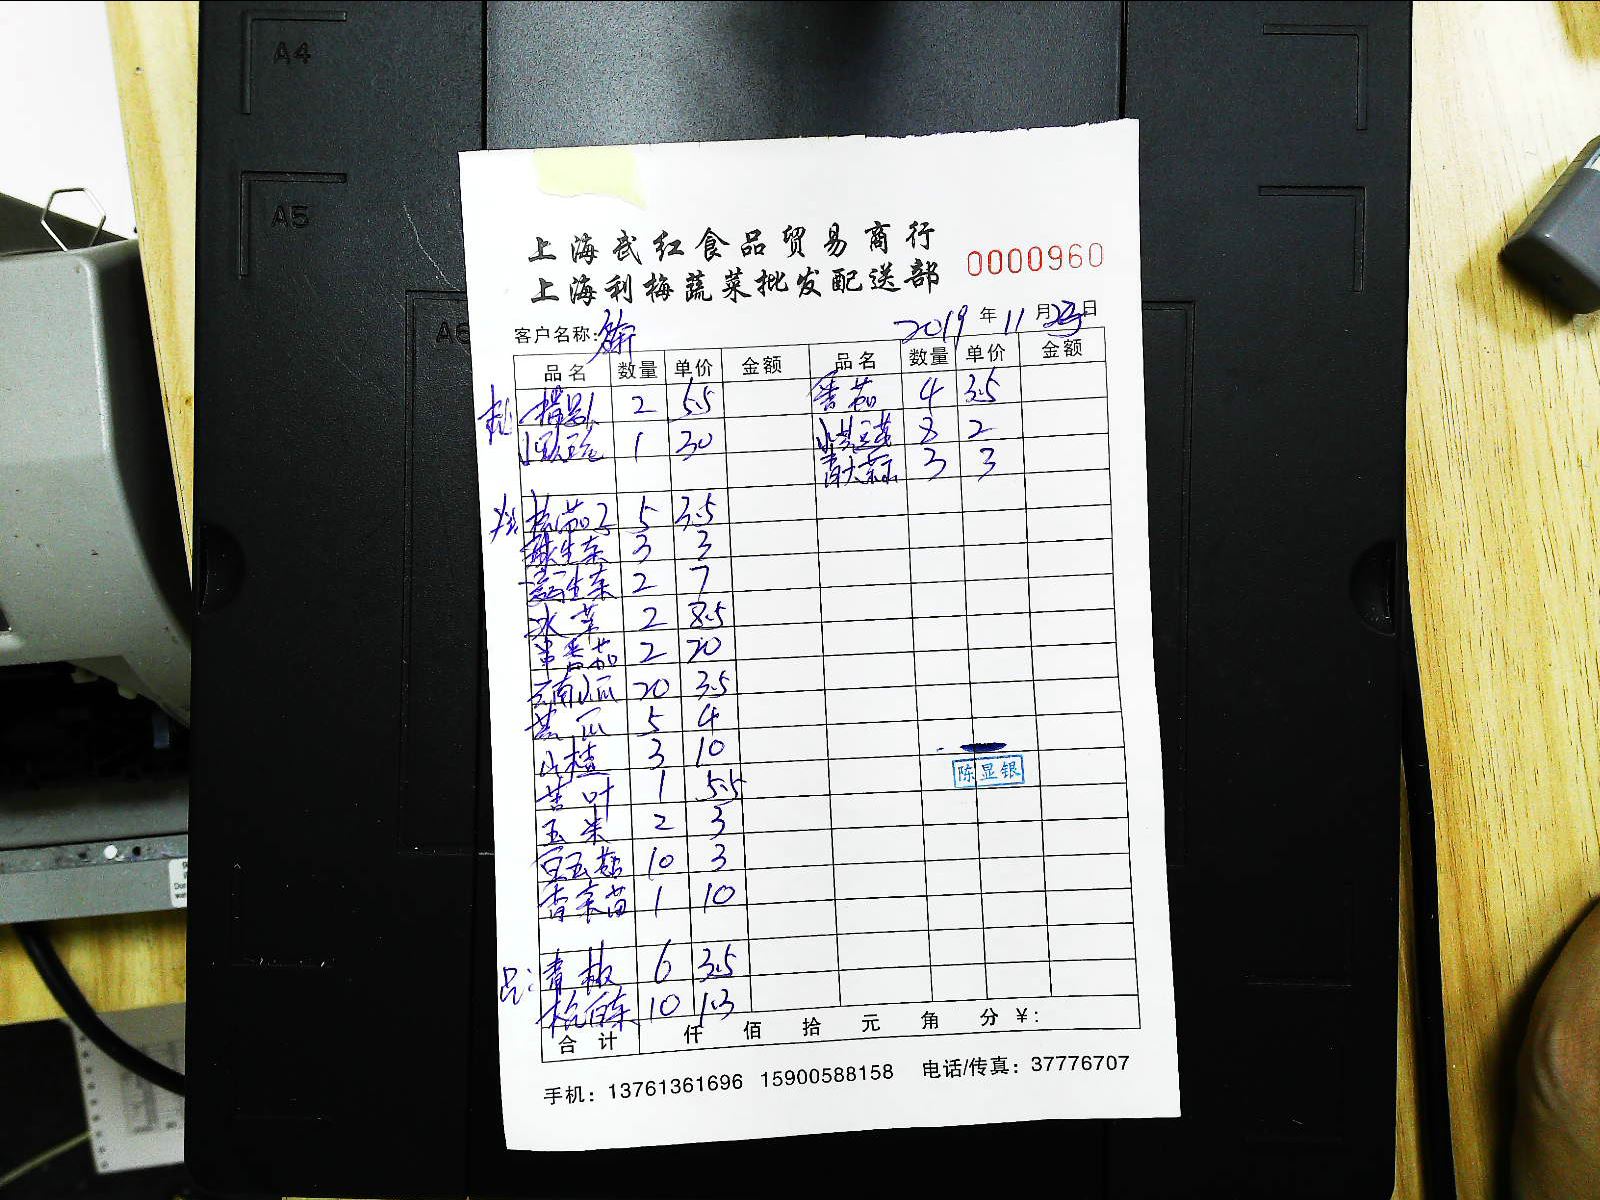 A4
A5
A6
上海武红食品贸易商行
0000960
上海利梅蔬菜批发配送部
客户名称:
2019 年 11 月 日
品名 数量 单价 金额 品名 数量 单价 金额
2 5.5 番茄 4 3.5
1 30 8 2
青大蒜 3 3
5 3.5
球生菜 3 3
生菜 2 7
冰菜 2 8.5
番茄 2 20
云南小瓜 20 3.5
黄瓜 5 4
山楂 3 10
苦叶 1 5.5
玉米 2 3
10 3
青菜苗 1 10
青椒 6 3.5
10 1.3
陈显银
合计 仟 佰 拾 元 角 分 ¥:
手机: 13761361696 15900588158 电话/传真: 37776707